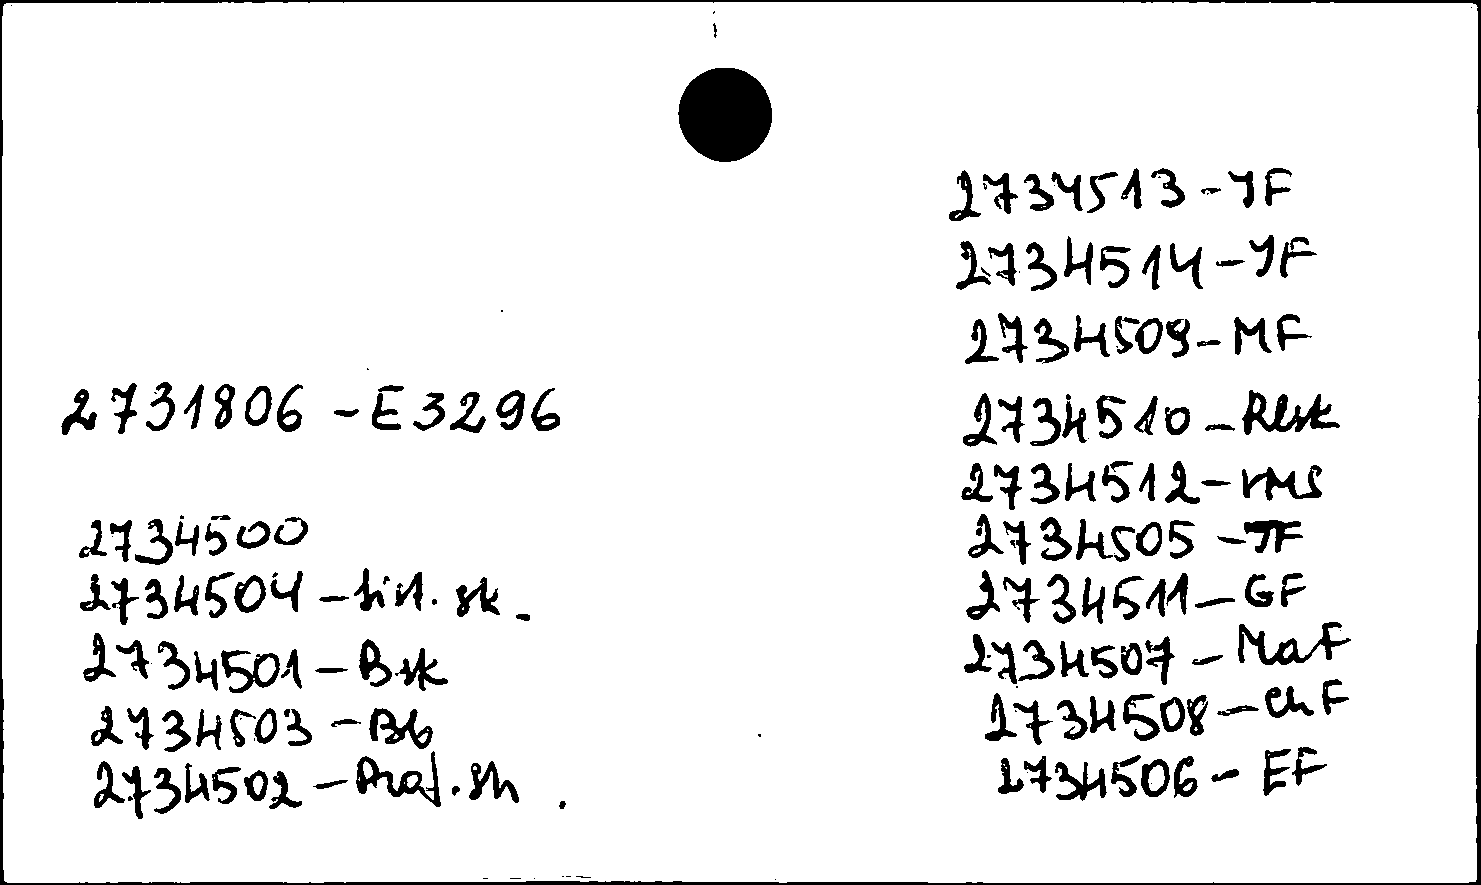 2731806 - E3296
2734500
2734504 - hist. sk.
2734501 - Bsk
2734503 - Bb
2734502 - Praf. sh.
2734513 - JF
2734514 - JF
2734509 - MF
2734510 - Resk
2734512 - rMS
2734505 - TF
2734511 - GF
2734507 - MaF
2734508 - ChF
2734506 - EF